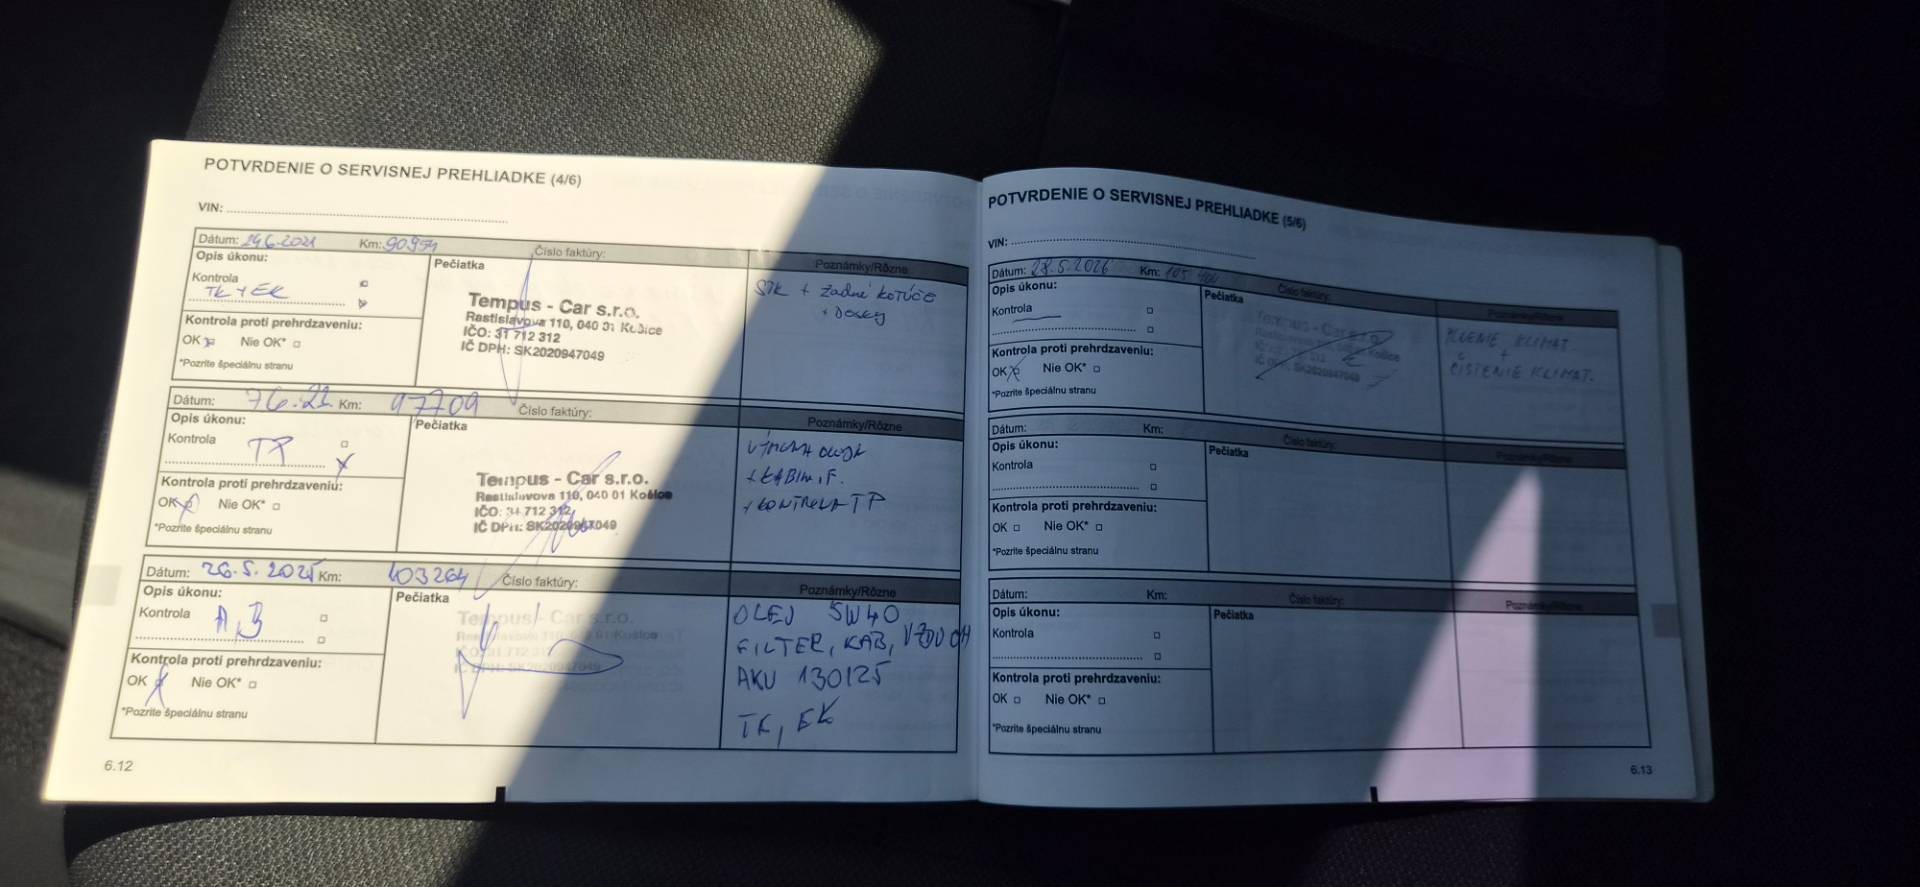 POTVRDENIE O SERVISNEJ PREHLIADKE (4/6)
VIN:
Dátum: 24.6.2021 Km: 90954 Číslo faktúry:
Opis úkonu:
Pečiatka
Poznámky/Rôzne
Kontrola
TK + EK
Tempus - Car s.r.o.
Rastislavova 110, 040 01 Košice
IČO: 31 712 312
IČ DPH: SK2020947049
STK + Zadné KOTÚČE
+ Dosky
Kontrola proti prehrdzaveniu:
OK Nie OK*
*Pozrite špeciálnu stranu
Dátum: Km: 97709 Číslo faktúry:
Opis úkonu:
Pečiatka
Poznámky/Rôzne
Kontrola
TP
Tempus - Car s.r.o.
Rastislavova 110, 040 01 Košice
IČO: 31 712 312
IČ DPH: SK2020947049
+ KABIN. F.
+ KONTROLA TP
Kontrola proti prehrdzaveniu:
OK Nie OK*
*Pozrite špeciálnu stranu
Dátum: 26.5.2025 Km: 103264 Číslo faktúry:
Opis úkonu:
Pečiatka
Poznámky/Rôzne
Kontrola
A, B
Tempus - Car s.r.o.
Rastislavova 110, 040 01 Košice
IČO: 31 712 312
IČ DPH: SK2020947049
OLEJ 5W40
FILTER, KAB, VZDUCH
AKU 130125
TK, EK
Kontrola proti prehrdzaveniu:
OK Nie OK*
*Pozrite špeciálnu stranu
6.12
POTVRDENIE O SERVISNEJ PREHLIADKE (5/6)
VIN:
Dátum: 28.5.2026 Km: Číslo faktúry:
Opis úkonu:
Pečiatka
Poznámky/Rôzne
Kontrola
Tempus - Car s.r.o.
Rastislavova 110, 040 01 Košice
IČ DPH: SK2020947049
KLIMAT.
+
ČISTENIE KLIMAT.
Kontrola proti prehrdzaveniu:
OK Nie OK*
*Pozrite špeciálnu stranu
Dátum: Km: Číslo faktúry:
Opis úkonu:
Pečiatka
Poznámky/Rôzne
Kontrola
Kontrola proti prehrdzaveniu:
OK Nie OK*
*Pozrite špeciálnu stranu
Dátum: Km: Číslo faktúry:
Opis úkonu:
Pečiatka
Poznámky/Rôzne
Kontrola
Kontrola proti prehrdzaveniu:
OK Nie OK*
*Pozrite špeciálnu stranu
6.13